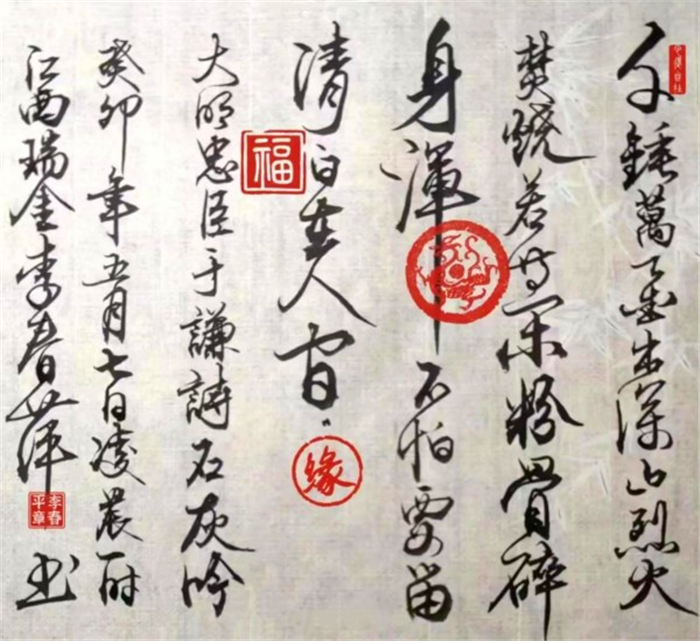 千錘萬鑿出深山烈火
焚燒若等閑粉骨碎
身渾不怕要留
清白在人間
大明忠臣于謙詩石灰吟
癸卯年五月七日凌晨时
江西瑞金李春萍书
福
缘
李春平章